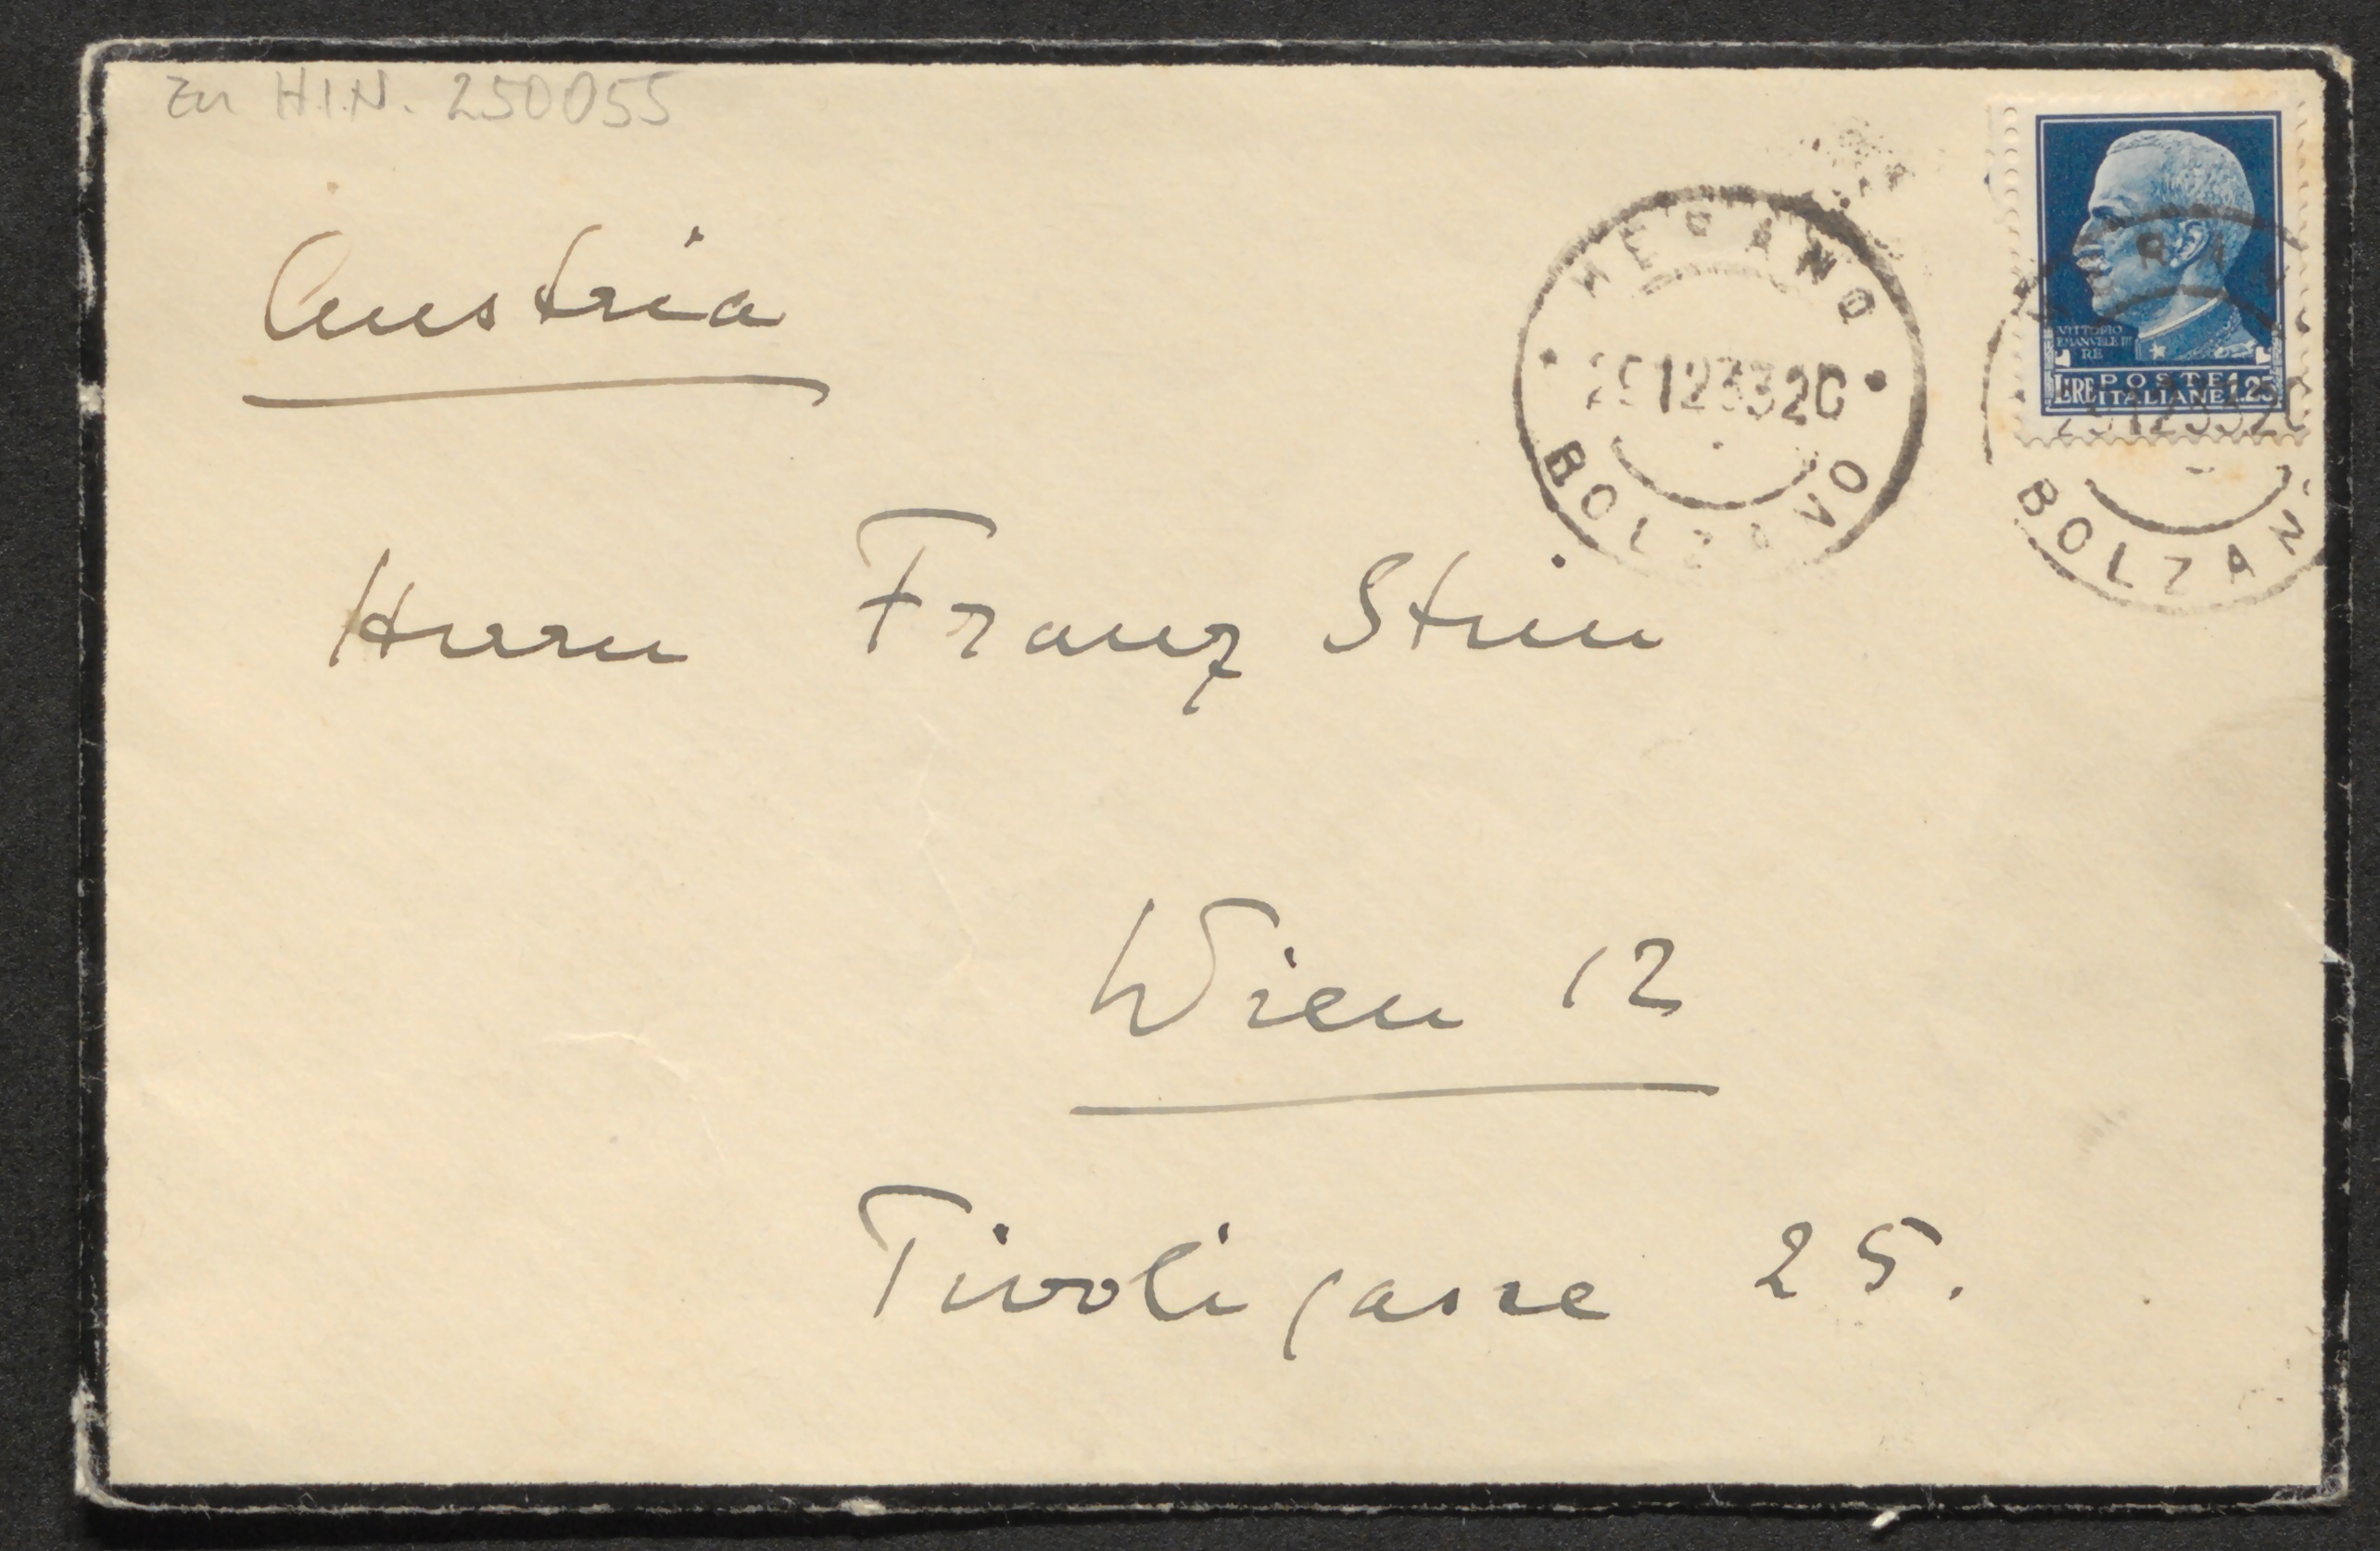 Zu H.I.N. 250055
Austria
MERANO
25 12 33 20
BOLZANO
VITTORIO
EMANVELE III
RE
LIRE POSTE 1.25
ITALIANE
MERA
25 12 33 20
BOLZAN
Herrn Franz Stein
Wien 12
Tivoligasse 25.